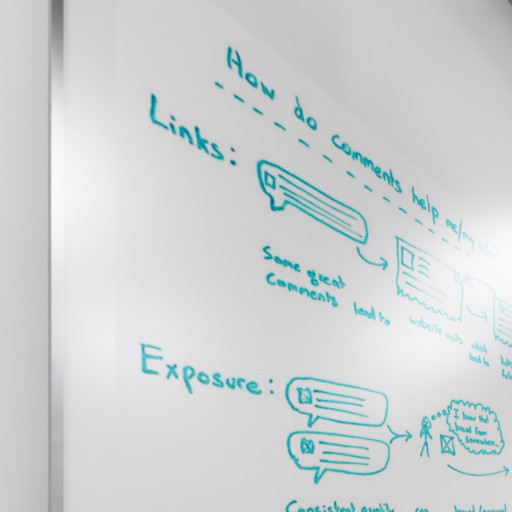 How do comments help me/my
Links:
Some great
Comments lead to website visits which
lead to
Exposure:
I know that
brand from
somewhere
Consistent quality